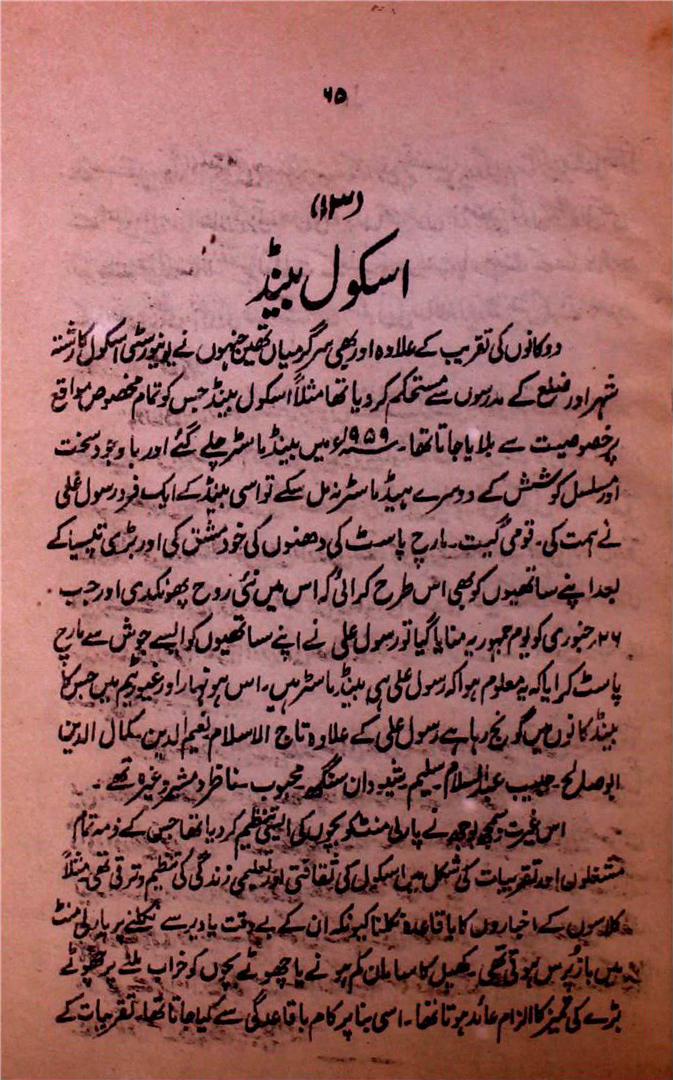 ۶۵
(۱۳)
اسکول بینڈ
دوکانوں کی تقریب کے علاوہ اور بھی سرگرمیاں تھیں جنہوں نے یونیورسٹی اسکول کا رشتہ
شہر اور ضلع کے مدرسوں سے مستحکم کر دیا تھا مثلاً اسکول بینڈ جس کو تمام مخصوص مواقع
پر خصوصیت سے بلایا جاتا تھا۔ ۱۹۵۹ء میں بینڈ ماسٹر چلے گئے اور باوجود سخت
اور مسلسل کوشش کے دوسرے ہیڈ ماسٹر نہ مل سکے تو اسی بینڈ کے ایک فرد رسول علی
نے ہمت کی۔ قومی گیت۔ مارچ پاسٹ کی دھنوں کی خود مشق کی اور بڑی تپسیا کے
بعد اپنے ساتھیوں کو بھی اس طرح کرائی کہ اس میں نئی روح پھونکدی اور جب
۲۶ جنوری کو یوم جمہوریہ منایا گیا تو رسول علی نے اپنے ساتھیوں کو ایسے جوش سے مارچ
پاسٹ کرایا کہ یہ معلوم ہوا کہ رسول علی ہی بینڈ ماسٹر ہیں۔ اس ہونہار اور غیور ٹیم میں جس کا
بینڈ کانوں میں گونج رہا ہے رسول علی کے علاوہ تاج الاسلام نعیم الدین۔ کمال الدین
ابو صالح۔ حبیب عبدالسلام سلیم۔ شیودان سنگھ۔ محبوب۔ ناظر و مشیر وغیرہ تھے۔
اس غیرت و سمجھ بوجھ نے پارلی منٹ کو بچوں کی ایسی تنظیم کر دیا تھا جس کے ذمہ تمام
مشغلوں اور تقریبات کی شکل میں اسکول کی ثقافتی اور تعلیمی زندگی کی تنظیم و ترقی تھی مثلاً
کلاسوں کے اخباروں کا باقاعدہ نکلنا کیونکہ ان کے بے وقت یا دیر سے نکلنے پر پارلی منٹ
میں بازپرس ہوتی تھی۔ کھیل کا سامان کم ہونے یا چھوٹے بچوں کو خراب بلے پر چھوٹے
بڑے کی تمیز کا الزام عائد ہوتا تھا۔ اسی بنا پر کام باقاعدگی سے کیا جاتا تھا۔ تقریبات کے